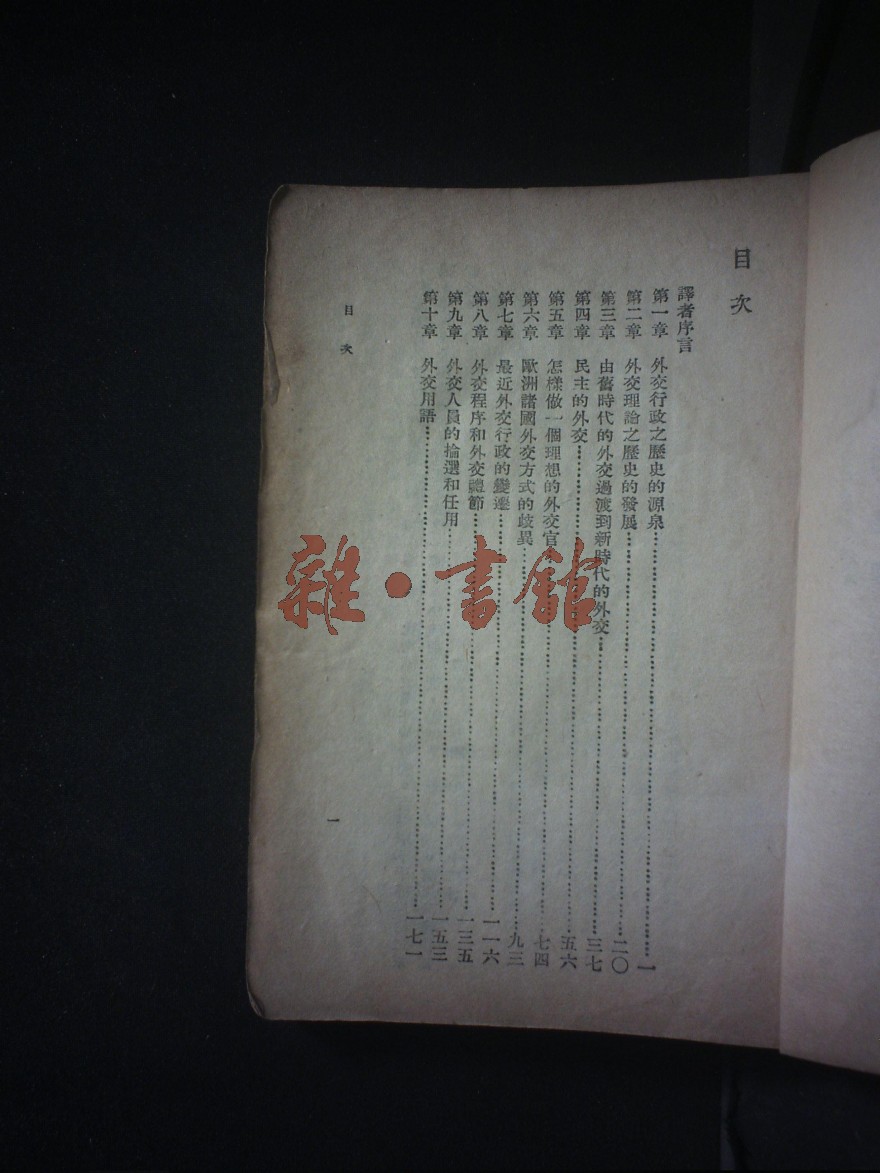 目次
譯者序言
第一章 外交行政之歷史的源泉 一
第二章 外交理論之歷史的發展 二〇
第三章 由舊時代的外交過渡到新時代的外交 三七
第四章 民主的外交 五六
第五章 怎樣做一個理想的外交官 七四
第六章 歐洲諸國外交方式的歧異 九三
第七章 最近外交行政的變遷 一一六
第八章 外交程序和外交禮節 一三五
第九章 外交人員的掄選和任用 一五三
第十章 外交用語 一七一
目次 一
雜·書館